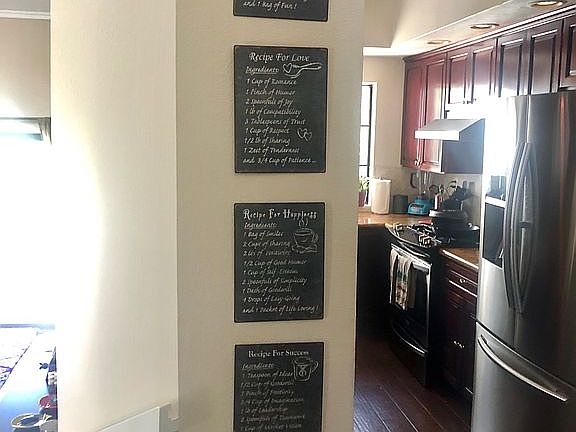 and 1 Bag of Fun!
Recipe For Love
Ingredients:
1 Cup of Romance
1 Pinch of Humor
2 Spoonfuls of Joy
1 lb of Compatibility
3 Tablespoons of Trust
1 Cup of Respect
1/2 lb of Sharing
1 Zest of Tenderness
and 3/4 Cup of Patience...
Recipe For Happiness
Ingredients:
1 Bag of Smiles
2 Cups of Sharing
1/2 Cup of Good Humor
1 Cup of Self Esteem
2 Spoonfuls of Simplicity
1 Dash of Goodwill
4 Drops of Easy-Going
and 1 Packet of Life Loving!
Recipe For Success
Ingredients:
1 Teaspoon of Ideas
1/2 Cup of Goodwill
1 Pinch of Positivity
3/4 Cup of Imagination
1 lb of Leadership
2 Spoonfuls of Teamwork
1 Cup of